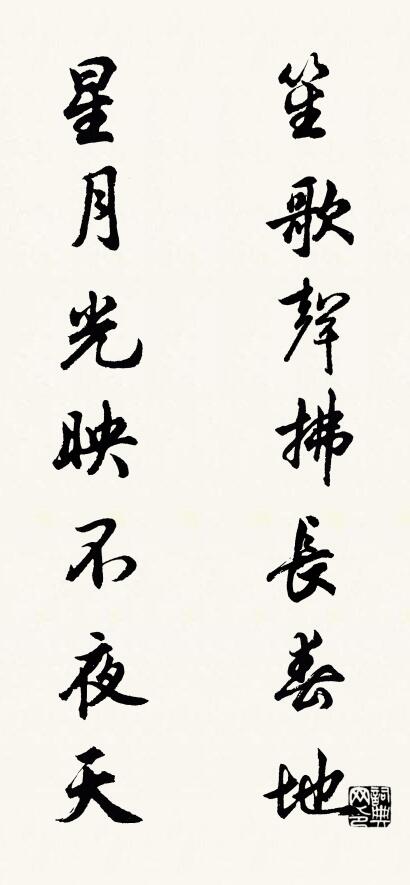 笙歌聲拂長春地
星月光映不夜天
詞典网